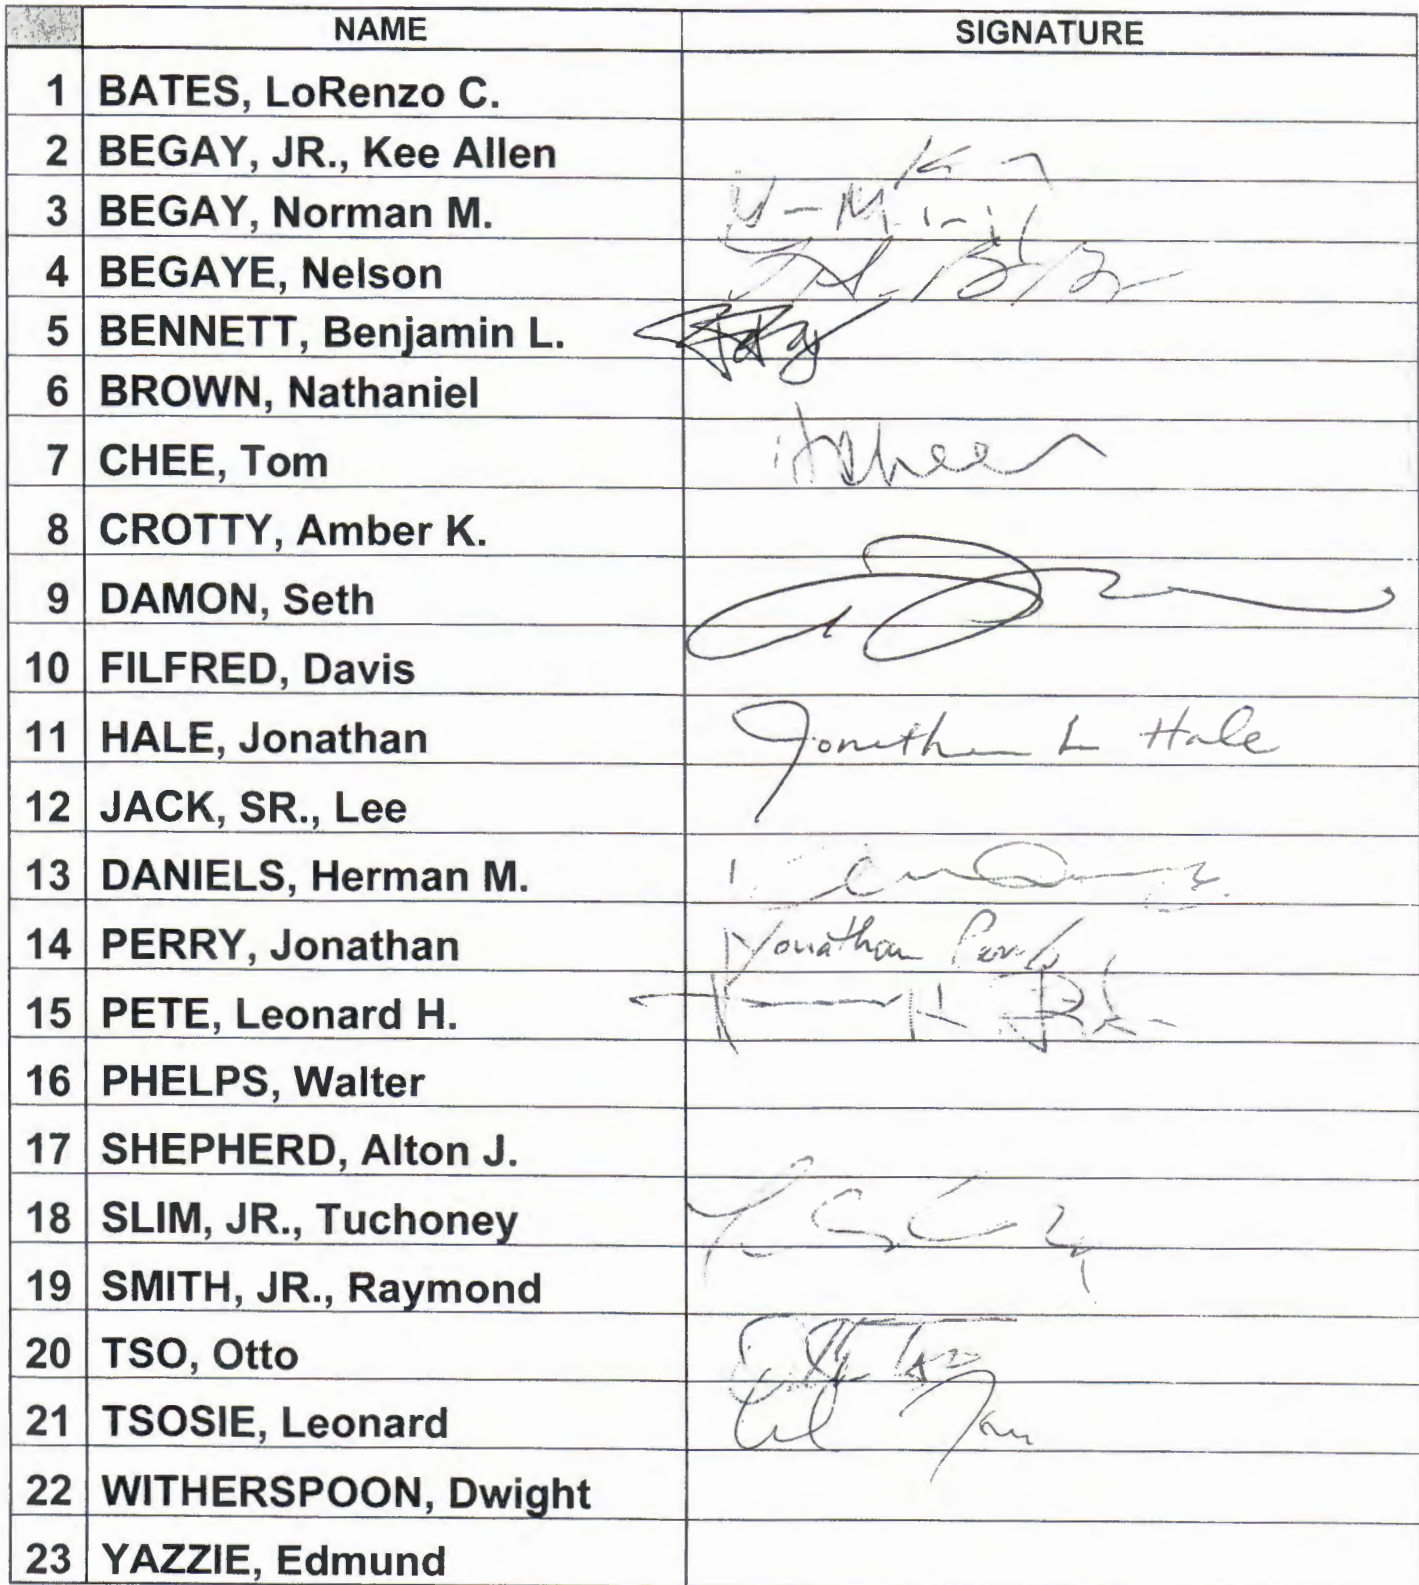 NAME SIGNATURE
1 BATES, LoRenzo C.
2 BEGAY, JR., Kee Allen
3 BEGAY, Norman M.
4 BEGAYE, Nelson
5 BENNETT, Benjamin L.
6 BROWN, Nathaniel
7 CHEE, Tom
8 CROTTY, Amber K.
9 DAMON, Seth
10 FILFRED, Davis
11 HALE, Jonathan Jonathan L Hale
12 JACK, SR., Lee
13 DANIELS, Herman M.
14 PERRY, Jonathan Jonathan Perry
15 PETE, Leonard H.
16 PHELPS, Walter
17 SHEPHERD, Alton J.
18 SLIM, JR., Tuchoney
19 SMITH, JR., Raymond
20 TSO, Otto Otto Tso
21 TSOSIE, Leonard
22 WITHERSPOON, Dwight
23 YAZZIE, Edmund